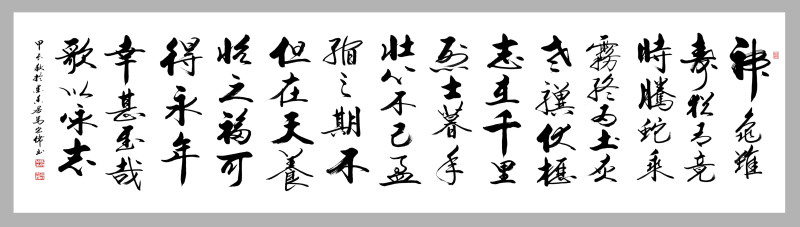 神龜雖
壽猶有竟
時騰蛇乘
霧終為土灰
老驥伏櫪
志在千里
烈士暮年
壯心不已盈
縮之期不
但在天養
怡之福可
得永年
幸甚至哉
歌以咏志
甲午秋於